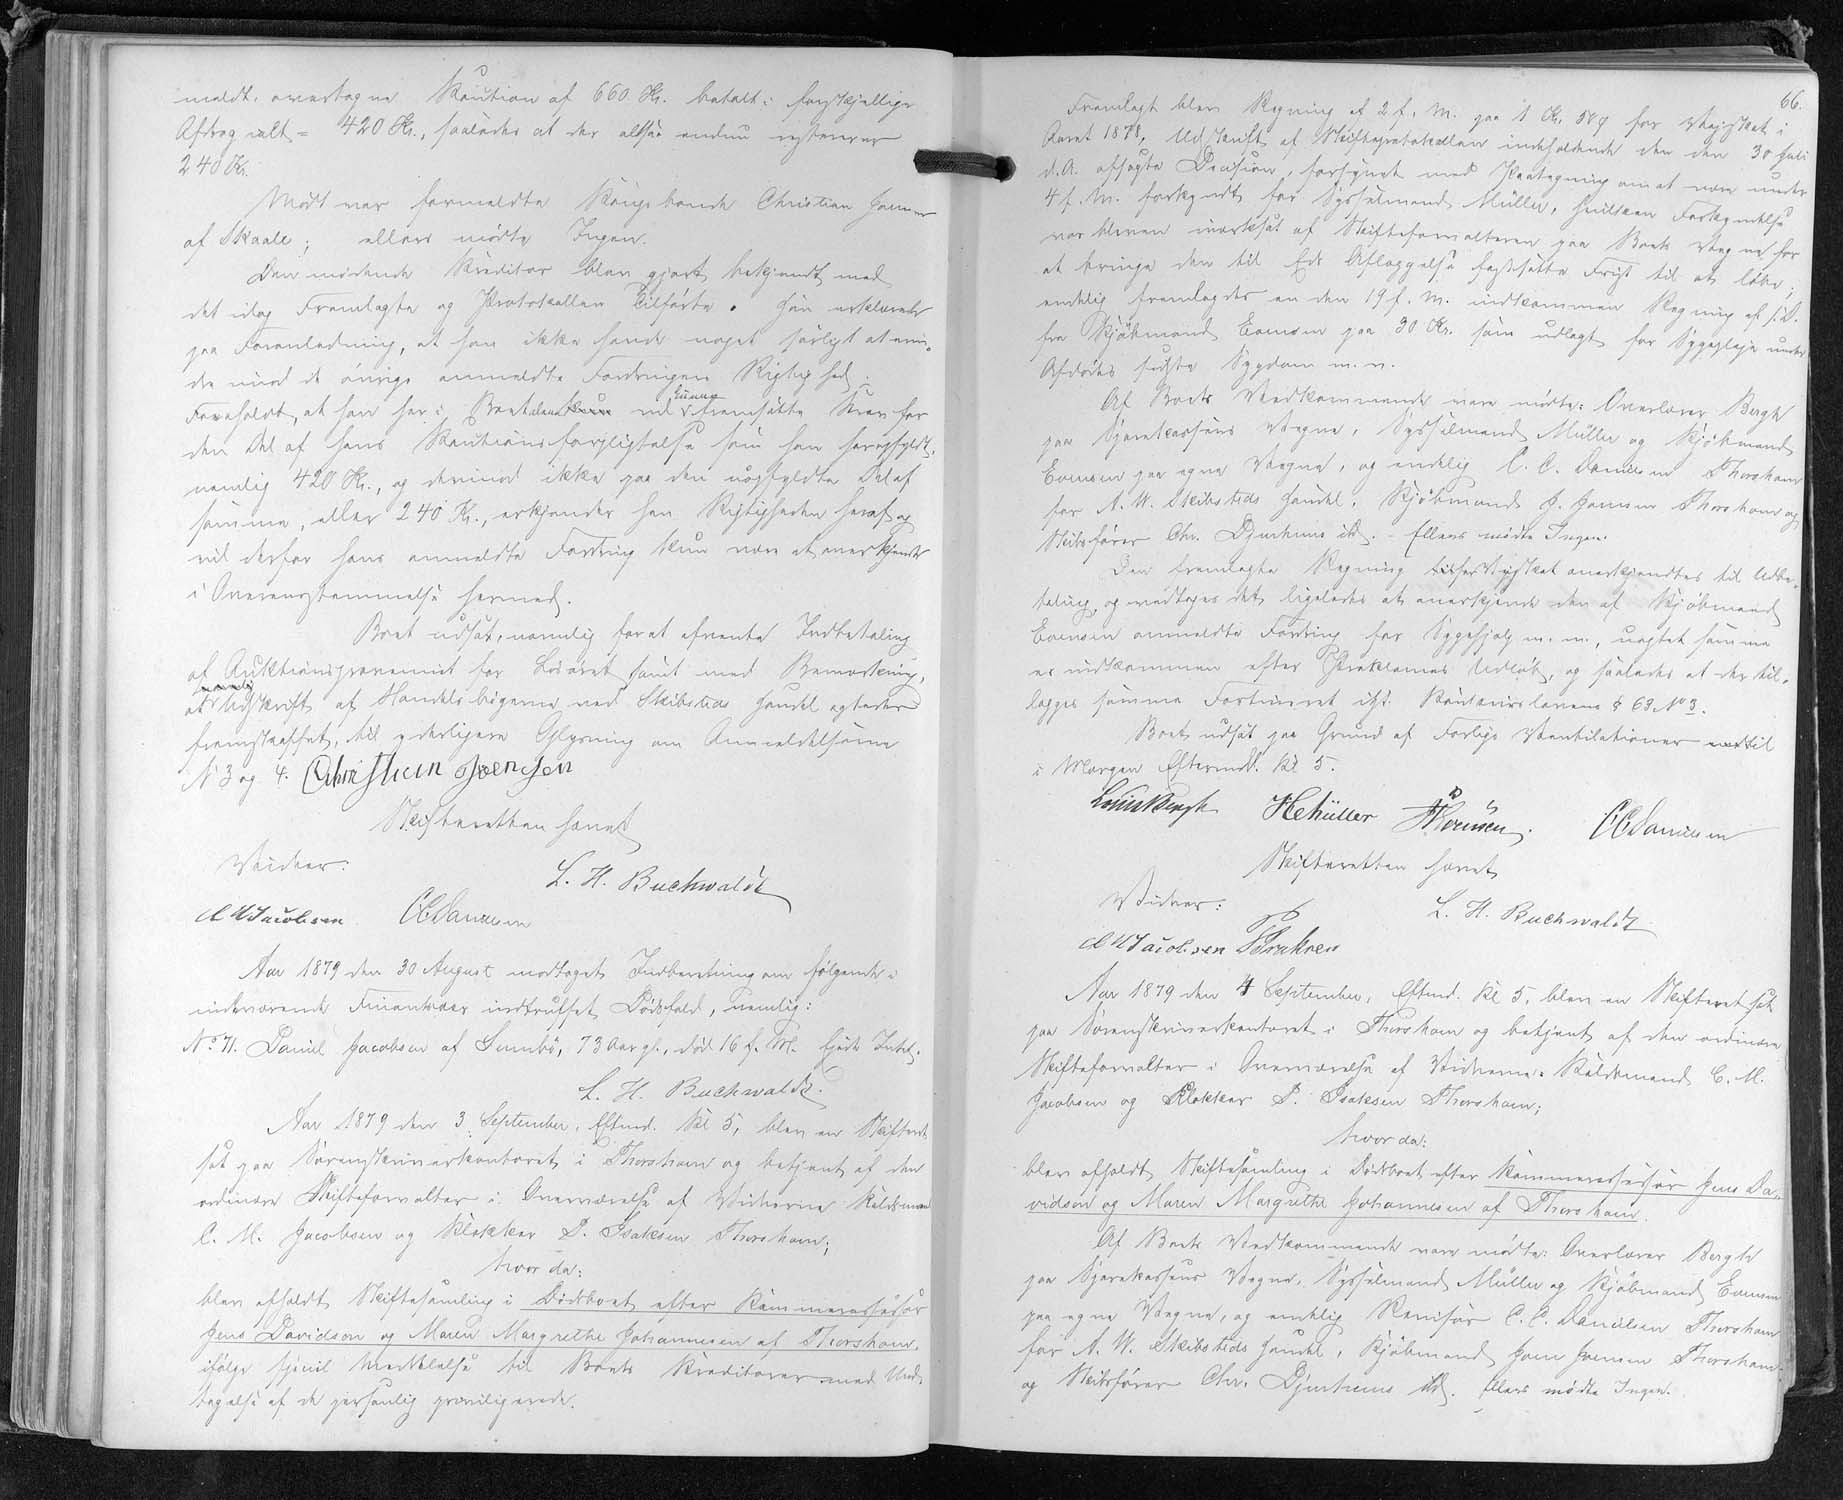 meldt. overtagne Kaution af 660 Kr. betalt i forskjellige
Afdrag ialt = 420 Kr., saaledes at der altsaa endnu resterer
240 Kr.
Mødt var formeldte Kongsbonde Christian Joensen
af Skaale; ellers mødte Ingen.
Den mødende Kreditor blev gjort bekjendt med
det idag Fremlagte og Protokollen Tilførte. Han erklærede
paa Foranledning, at han ikke havde noget særligt at erin-
dre mod de øvrige anmeldte Fordringers Rigtighed.
Foreholdt, at han her i Boet vil kunne fremsætte Krav for
den Del af hans Kautionsforpligtelse som han har opfyldt,
nemlig 420 Kr., og derimod ikke paa den uopfyldte Del af
samme, eller 240 Kr., erkjender han Rigtigheden heraf og
vil derfor hans anmeldte Fordring kun være at anerkjende
i Overensstemmelse hermed.
Boet udsat, nemlig for at afvente Indbetaling
af Auktionsprovenuet for Løsøret samt med Bemærkning,
at Udskrift af Handelsbøgerne ved Skibsteds Handel agtedes
fremskaffet, til yderligere Oplysning om Anmeldelserne
N 3 og 4. Christian Joensen
Skifteretten hævet
Vidner: L. H. Buchwaldt
C M Jacobsen CC Danielsen
Aar 1879 den 30 August modtoges Indberetning om følgende i
indeværende Finantsaar indtruffet Dødsfald, nemlig:
No 71. Daniel Jacobsen af Sumbø, 73 Aar gl., død 16 f. M. Ejede Intet.
L. H. Buchwaldt.
Aar 1879 den 3. September, Eftmd. Kl 5, blev en Skifteret
sat paa Sorenskriverkontoret i Thorshavn og betjent af den
ordinære Skifteforvalter i Overværelse af Vidnerne Raadsmand
C. M. Jacobsen og Klokker P. Isaksen Thorshavn;
hvor da:
blev afholdt Skiftesamling i Dødsboet efter Kammerassessor
Jens Davidson og Maren Margrethe Johannesen af Thorshavn,
ifølge speciel Meddelelse til Boets Kreditorer med Und-
tagelse af de personlig priviligerede.
66.
Fremlagt blev Regning af 2 f. M. paa 1 Kr. for Vejskat i
Aaret 1878, Udskrift af Skifteprotokollen indeholdende den den 30 Juli
d. A. afsagte Decision, forsynet med Paategning om at være under
4 f. M. forkyndt for Sysselmand Müller, hvilken Forkyndelse
var bleven iværksat af Skifteforvalteren paa Boets Vegne for
at bringe den til Eds Aflæggelse fastsatte Frist til at løbe;
endelig fremlagdes en den 19 f. M. indkommen Regning af s. D.
fra Kjøbmand Evensen paa 30 Kr. som udlagt for Sygepleje under
Afdødes sidste Sygdom m. v.
Af Boets Vedkommende vare mødte: Overlærer Bergh
paa Sparekassens Vegne, Sysselmand Müller og Kjøbmand
Evensen paa egne Vegne, og endelig C. C. Danielsen Thorshavn
for A. W. Skibsteds Handel, Kjøbmand J. Joensen Thorshavn og
Skibsfører Chr. Djurhuus ibd. - Ellers mødte Ingen.
Den fremlagte Regning for Vejskat anerkjendtes til Udbe-
taling, og vedtoges det ligeledes at anerkjende den af Kjøbmand
Evensen anmeldte Fordring for Sygehjælp m. m., uagtet samme
er indkommen efter Proklamas Udløb, og saaledes at der til-
lægges samme Fortrinret ifl. Konkurslovens § 63 No 3.
Boet udsat paa Grund af Forligs Ventilationer til
i Morgen Eftermdd. Kl 5.
Louis Bergh HCMüller CC Danielsen
Skifteretten hævet
Vidner: L. H. Buchwaldt
C M Jacobsen P Isaksen
Aar 1879 den 4 September, Eftmd. Kl 5, blev en Skifteret sat
paa Sorenskriverkontoret i Thorshavn og betjent af den ordinære
Skifteforvalter i Overværelse af Vidnerne Raadsmand C. M.
Jacobsen og Klokker P. Isaksen Thorshavn;
hvor da:
blev afholdt Skiftesamling i Dødsboet efter Kammerassessor Jens Da-
vidson og Maren Margrethe Johannesen af Thorshavn.
Af Boets Vedkommende vare mødte: Overlærer Bergh
paa Sparekassens Vegne, Sysselmand Müller og Kjøbmand Evensen
paa egne Vegne, og endelig Revisor C. C. Danielsen Thorshavn
for A. W. Skibsteds Handel, Kjøbmand Joen Joensen Thorshavn
og Skibsfører Chr. Djurhuus ibd. Ellers mødte Ingen.